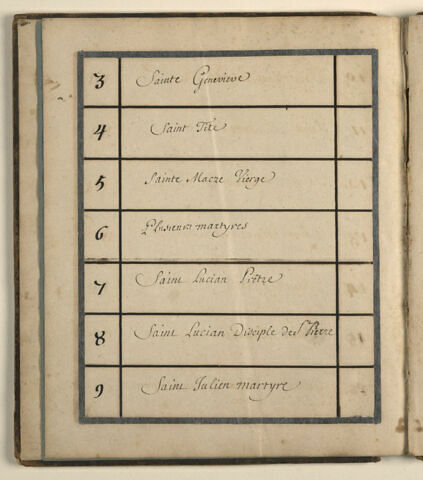 3 Sainte Geneviève
4 Saint Tite
5 Sainte Macre Vierge
6 Plusieurs martyres
7 Saint Lucian Prêtre
8 Saint Lucian Disciple de St Pierre
9 Saint Julien martyre